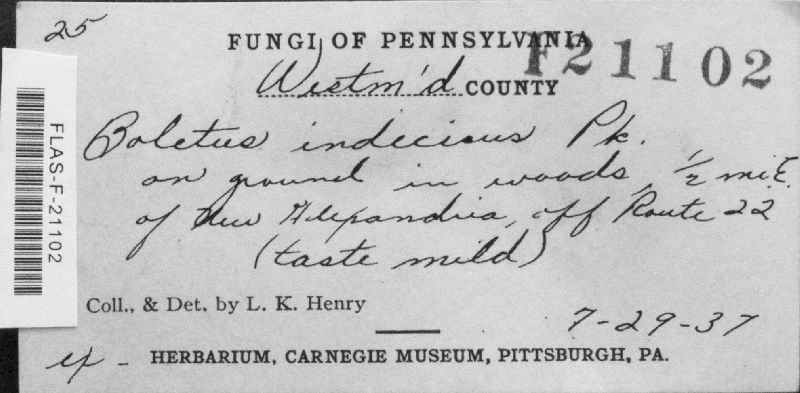 25
FUNGI OF PENNSYLVANIA
F21102
Westm'd COUNTY
Boletus indecisus Pk.
on ground in woods, ½ mi E.
of New Alexandria, off Route 22
(taste mild)
FLAS-F-21102
Coll., & Det. by L. K. Henry
7-29-37
HERBARIUM, CARNEGIE MUSEUM, PITTSBURGH, PA.